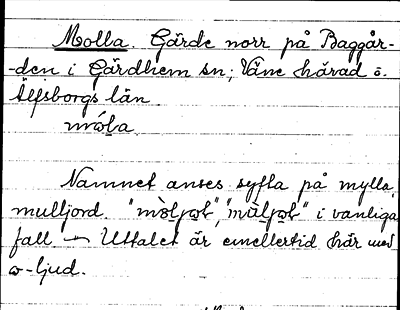 Molla. Gärde norr på Baggår-
-den i Gärdhem sn; Väne härad o.
Älfsborgs län
Namnet anses syfta på mylla,
mulljord. i vanliga
fall — Uttalet är emellertid här med
-ljud.